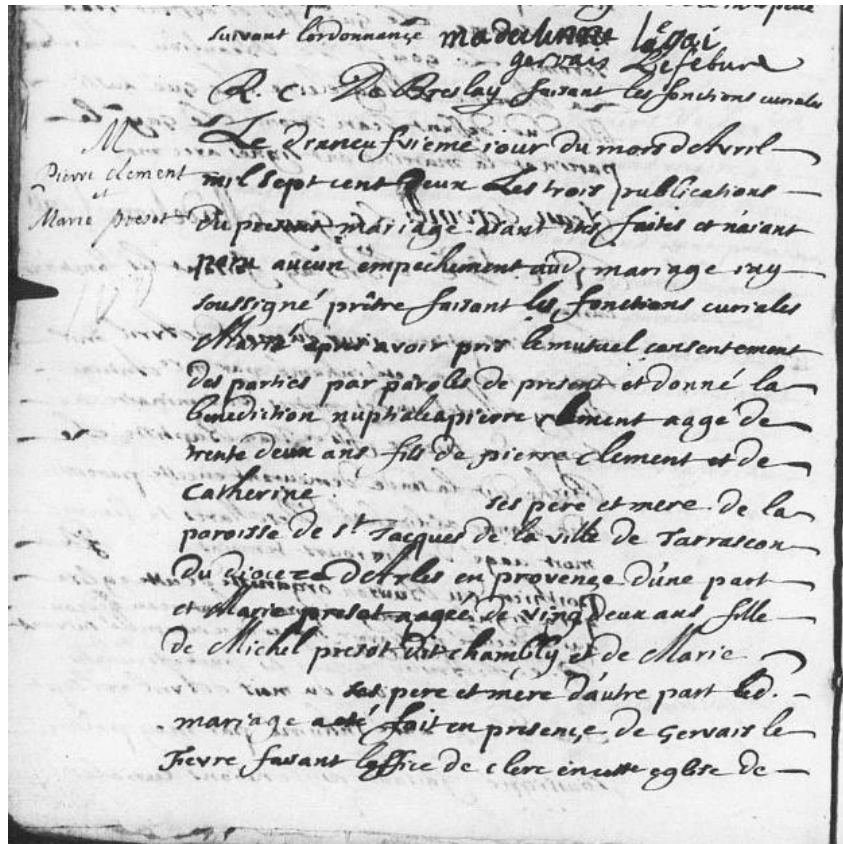 suivant l'ordonnance madeleinne le gai
gervais Lefebure
R. C. De Breslay faisant les fonctions curiales
M
Pierre Clement
et
Marie presot
Le vieme iour du mois d'Avril
mil sept cent deux Les trois publications
du present mariage aiant été faites et n'aiant
aucun empechement aud. mariage iay
soussigné prêtre faisant les fonctions curiales
Marié apres avoir pris le mutuel consentement
des parties par paroles de present et donné la
benediction nuptiale a pierre clement aagé de
trente deux ans fils de pierre clement et de
Catherine ses pere et mere de la
paroisse de st Jacques de la ville de Tarrascon
du dioceze d'Arles en provençe d'une part
et Marie presot aagée de vingt deux ans fille
de Michel presot dit chambly et de Marie
ses pere et mere d'autre part led.
mariage a eté fait en presençe de Gervais le
Fievre faisant l'office de clerc en cette eglise de